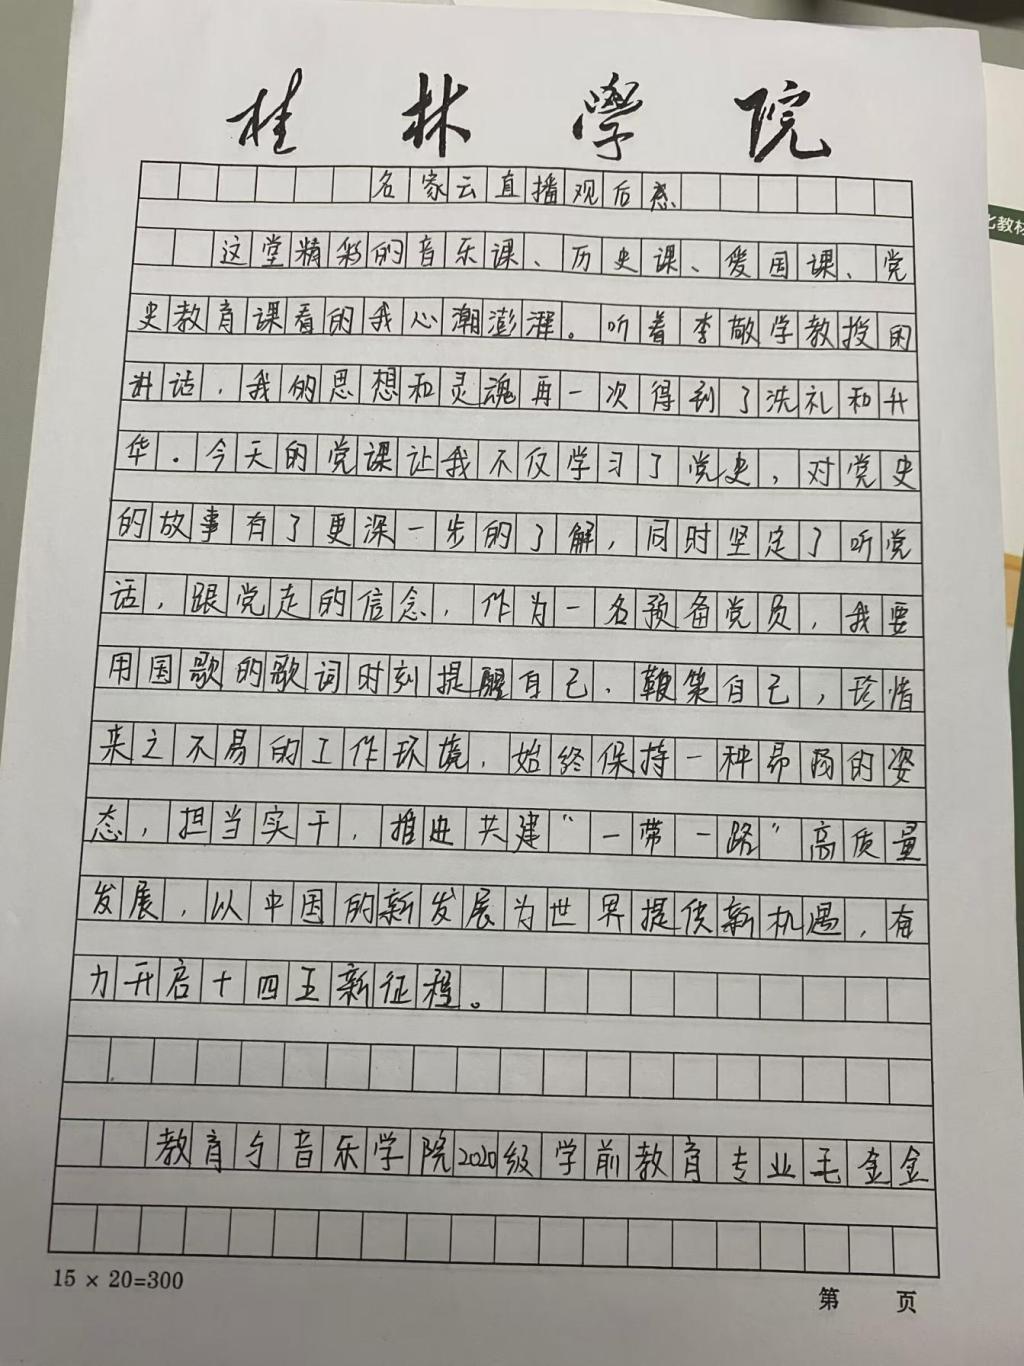 桂林學院
名家云直播观后感
这堂精彩的音乐课、历史课、爱国课、党
史教育课看的我心潮澎湃。听着李敬学教授的
讲话，我的思想和灵魂再一次得到了洗礼和升
华。今天的党课让我不仅学习了党史，对党史
的故事有了更深一步的了解，同时坚定了听党
话，跟党走的信念，作为一名预备党员，我要
用国歌的歌词时刻提醒自己、鞭策自己，珍惜
来之不易的工作环境，始终保持一种昂扬的姿
态，担当实干，推进共建“一带一路”高质量
发展，以中国的新发展为世界提供新机遇，有
力开启十四五新征程。
教育与音乐学院2020级学前教育专业毛金金
15×20=300
第 页
化教材